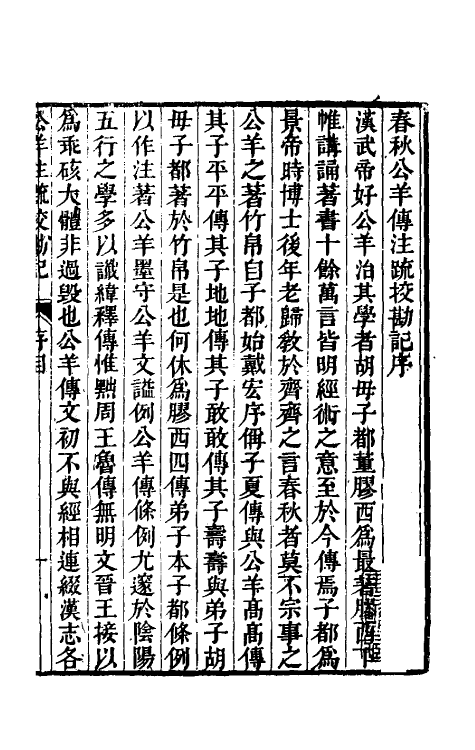 春秋公羊傳注疏挍勘記序
漢武帝好公羊治其學者胡毋子都董膠西爲最著膠西下
帷講誦著書十餘萬言皆明經術之意至於今傳焉子都爲
景帝時博士後年老歸敎於齊齊之言春秋者莫不宗事之
公羊之著竹帛自子都始戴宏序偁子夏傳與公羊高高傳
其子平平傳其子地地傳其子敢敢傳其子壽壽與弟子胡
毋子都著於竹帛是也何休爲膠西四傳弟子本子都條例
以作注著公羊墨守公羊文謚例公羊傳條例尤邃於陰陽
五行之學多以讖緯釋傳惟黜周王魯傳無明文晉王接以
爲乖硋大體非過毀也公羊傳文初不與經相連綴漢志各
公羊注疏挍勘記 序目 一